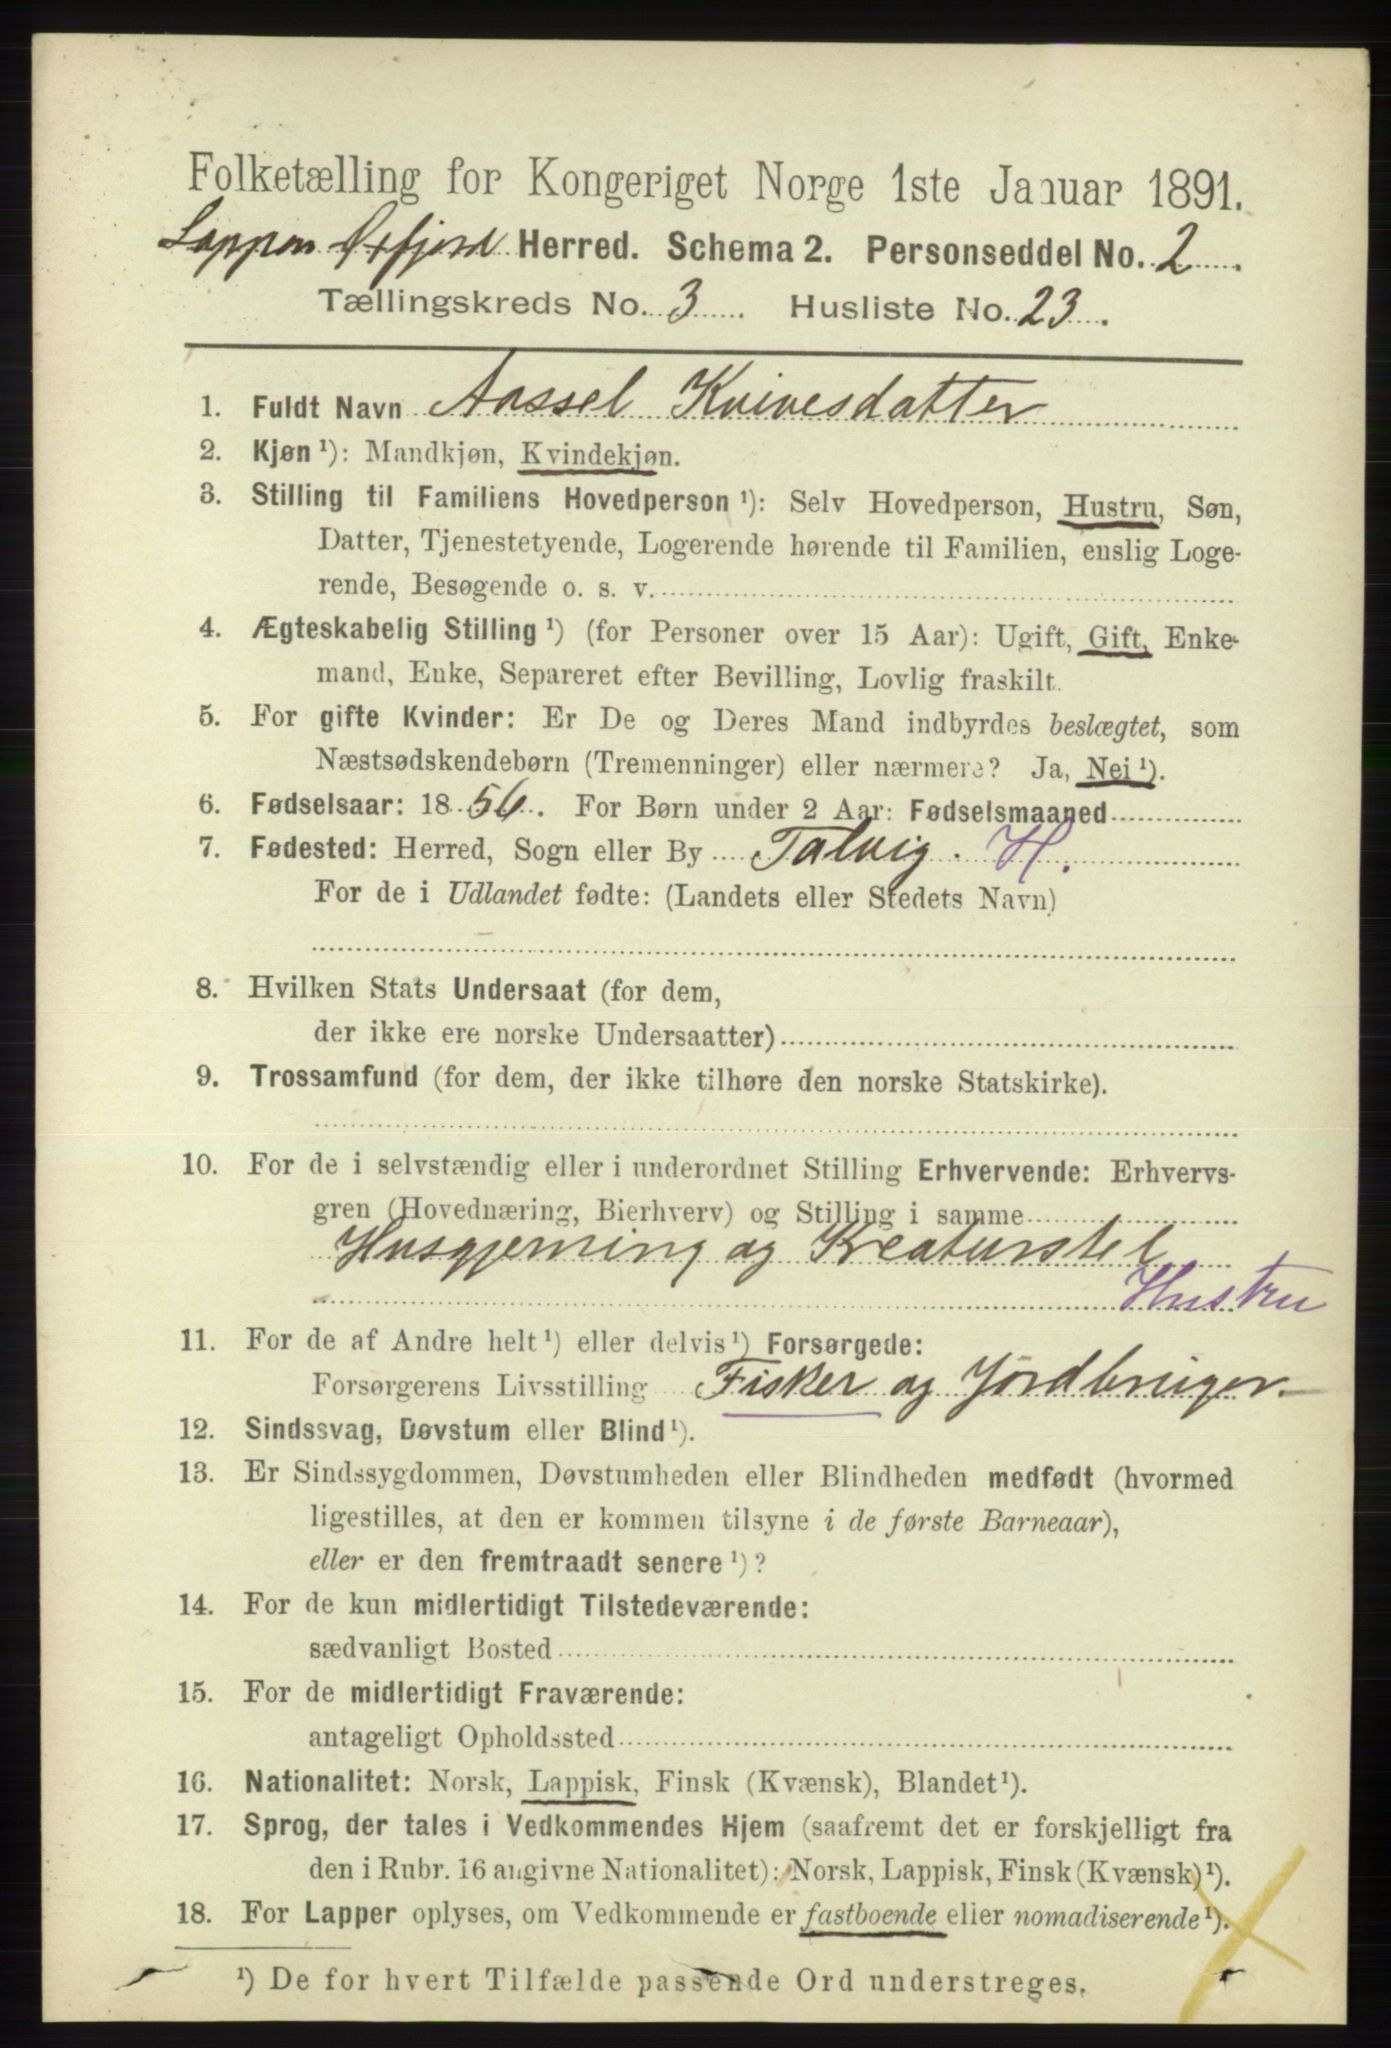 Folketælling for Kongeriget Norge 1ste Januar 1891.
Herred. Schema 2. Personseddel No. 2
Tællingskreds No. 3. Husliste No. 23.
1. Fuldt Navn Aassel Kvivesdatter
2. Kjøn ¹): Mandkjøn, Kvindekjøn.
3. Stilling til Familiens Hovedperson ¹): Selv Hovedperson, Hustru, Søn,
Datter, Tjenestetyende, Logerende hørende til Familien, enslig Loge-
rende, Besøgende o. s. v.
4. Ægteskabelig Stilling ¹) (for Personer over 15 Aar): Ugift, Gift, Enke-
mand, Enke, Separeret efter Bevilling, Lovlig fraskilt.
5. For gifte Kvinder: Er De og Deres Mand indbyrdes beslægtet, som
Næstsødskendebørn (Tremenninger) eller nærmere? Ja, Nei ¹).
6. Fødselsaar: 1856. For Børn under 2 Aar: Fødselsmaaned
7. Fødested: Herred, Sogn eller By Talvig. H.
For de i Udlandet fødte: (Landets eller Stedets Navn)
8. Hvilken Stats Undersaat (for dem,
der ikke ere norske Undersaatter)
9. Trossamfund (for dem, der ikke tilhøre den norske Statskirke).
10. For de i selvstændig eller i underordnet Stilling Erhvervende: Erhvervs-
gren (Hovednæring, Bierhverv) og Stilling i samme
Husgjerning og Kreaturstel
Hustru
11. For de af Andre helt ¹) eller delvis ¹) Forsørgede:
Forsørgerens Livsstilling Fisker og Jordbruger.
12. Sindssvag, Døvstum eller Blind ¹).
13. Er Sindssygdommen, Døvstumheden eller Blindheden medfødt (hvormed
ligestilles, at den er kommen tilsyne i de første Barneaar),
eller er den fremtraadt senere ¹)?
14. For de kun midlertidigt Tilstedeværende:
sædvanligt Bosted
15. For de midlertidigt Fraværende:
antageligt Opholdssted
16. Nationalitet: Norsk, Lappisk, Finsk (Kvænsk), Blandet ¹).
17. Sprog, der tales i Vedkommendes Hjem (saafremt det er forskjelligt fra
den i Rubr. 16 angivne Nationalitet): Norsk, Lappisk, Finsk (Kvænsk) ¹).
18. For Lapper oplyses, om Vedkommende er fastboende eller nomadiserende ¹).
¹) De for hvert Tilfælde passende Ord understreges.